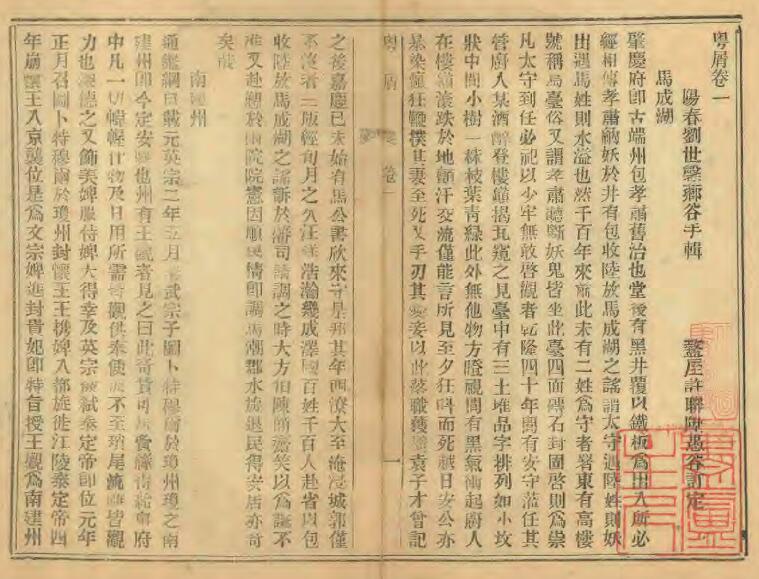 粵屑卷一
陽春劉世馨薌谷手輯　　盩厔許聯陞愚谷訂定
馬成湖
肇慶府即古端州包孝肅舊治也堂後有黑井覆以鐵板為出入所必
經相傳孝肅納妖於井有包收陸放馬成湖之謠謂太守遇陸姓則妖
出遇馬姓則水溢也然千百年來　此未有二姓為守者署東有高樓
號稱烏臺俗又謂孝肅聽斷妖鬼皆坐此臺四面磚石封固啓則為祟
凡太守到任必祀以少牢無敢啓觀者乾隆四十年間有安守蒞任其
管廚人某酒醉登樓　揭瓦窺之見臺中有三土堆品字排列如小墳
狀中間小樹一株枝葉青綠此外無他物方瞪視間有黑氣衝起廚人
在樓　滾跌於地顫汗交流僅能言所見至夕狂叫而死越日安公亦
暴染癲狂鞭撲其妻至死又手刃其愛妾以此落職　　袁子才曾記
粵屑　卷一　一
之後嘉慶己未始有馬公書欣來守是邦其年西潦大至淹浸城郭僅
不沒者三版經旬月之久汪洋浩瀚幾成澤國百姓千百人赴省以包
收陸放馬成湖之謠訴於藩司請調之時大方伯陳　　笑以為誕不
准又赴愬於　院院憲因順民情即調馬潮郡水旋退民得安居亦奇
矣哉
南建州
通鑑綱目載元英宗二年五月　武宗子圖卜特穆爾於瓊州瓊之南
建州即今定安縣也州有王官者見之曰此奇貨可居　　　給　府
中凡一切幃幄什物及日用所需　觀供奉使　不至瑣尾流離皆觀
力也　德之又飾美婢服侍婢大得幸及英宗被弒泰定帝即位元年
正月召圖卜特穆爾於瓊州封懷王王攜婢入都旋徙江陵泰定帝四
年崩懷王入京襲位是為文宗婢進封貴妃即特旨授王觀為南建州